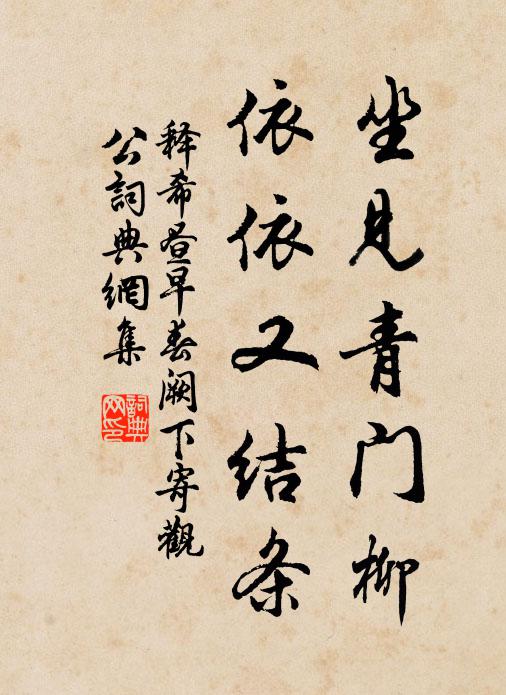 坐见青门柳
依依又结条
释希昼早春阙下寄觀
公詞典網集
詞典网印